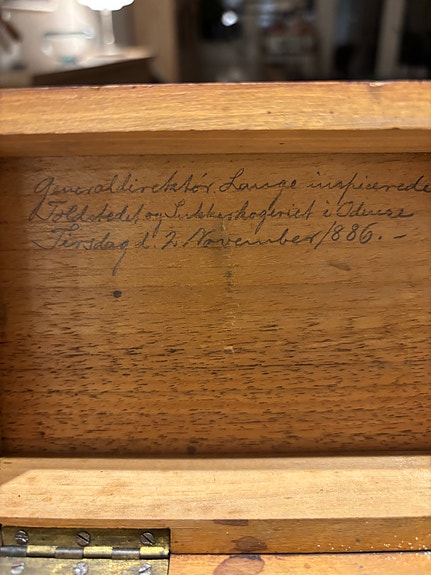 Generaldirektør Lange inspicerede
Toldstedet og Sukkerkogeriet i Odense
Tirsdag d. 2 November 1886. –